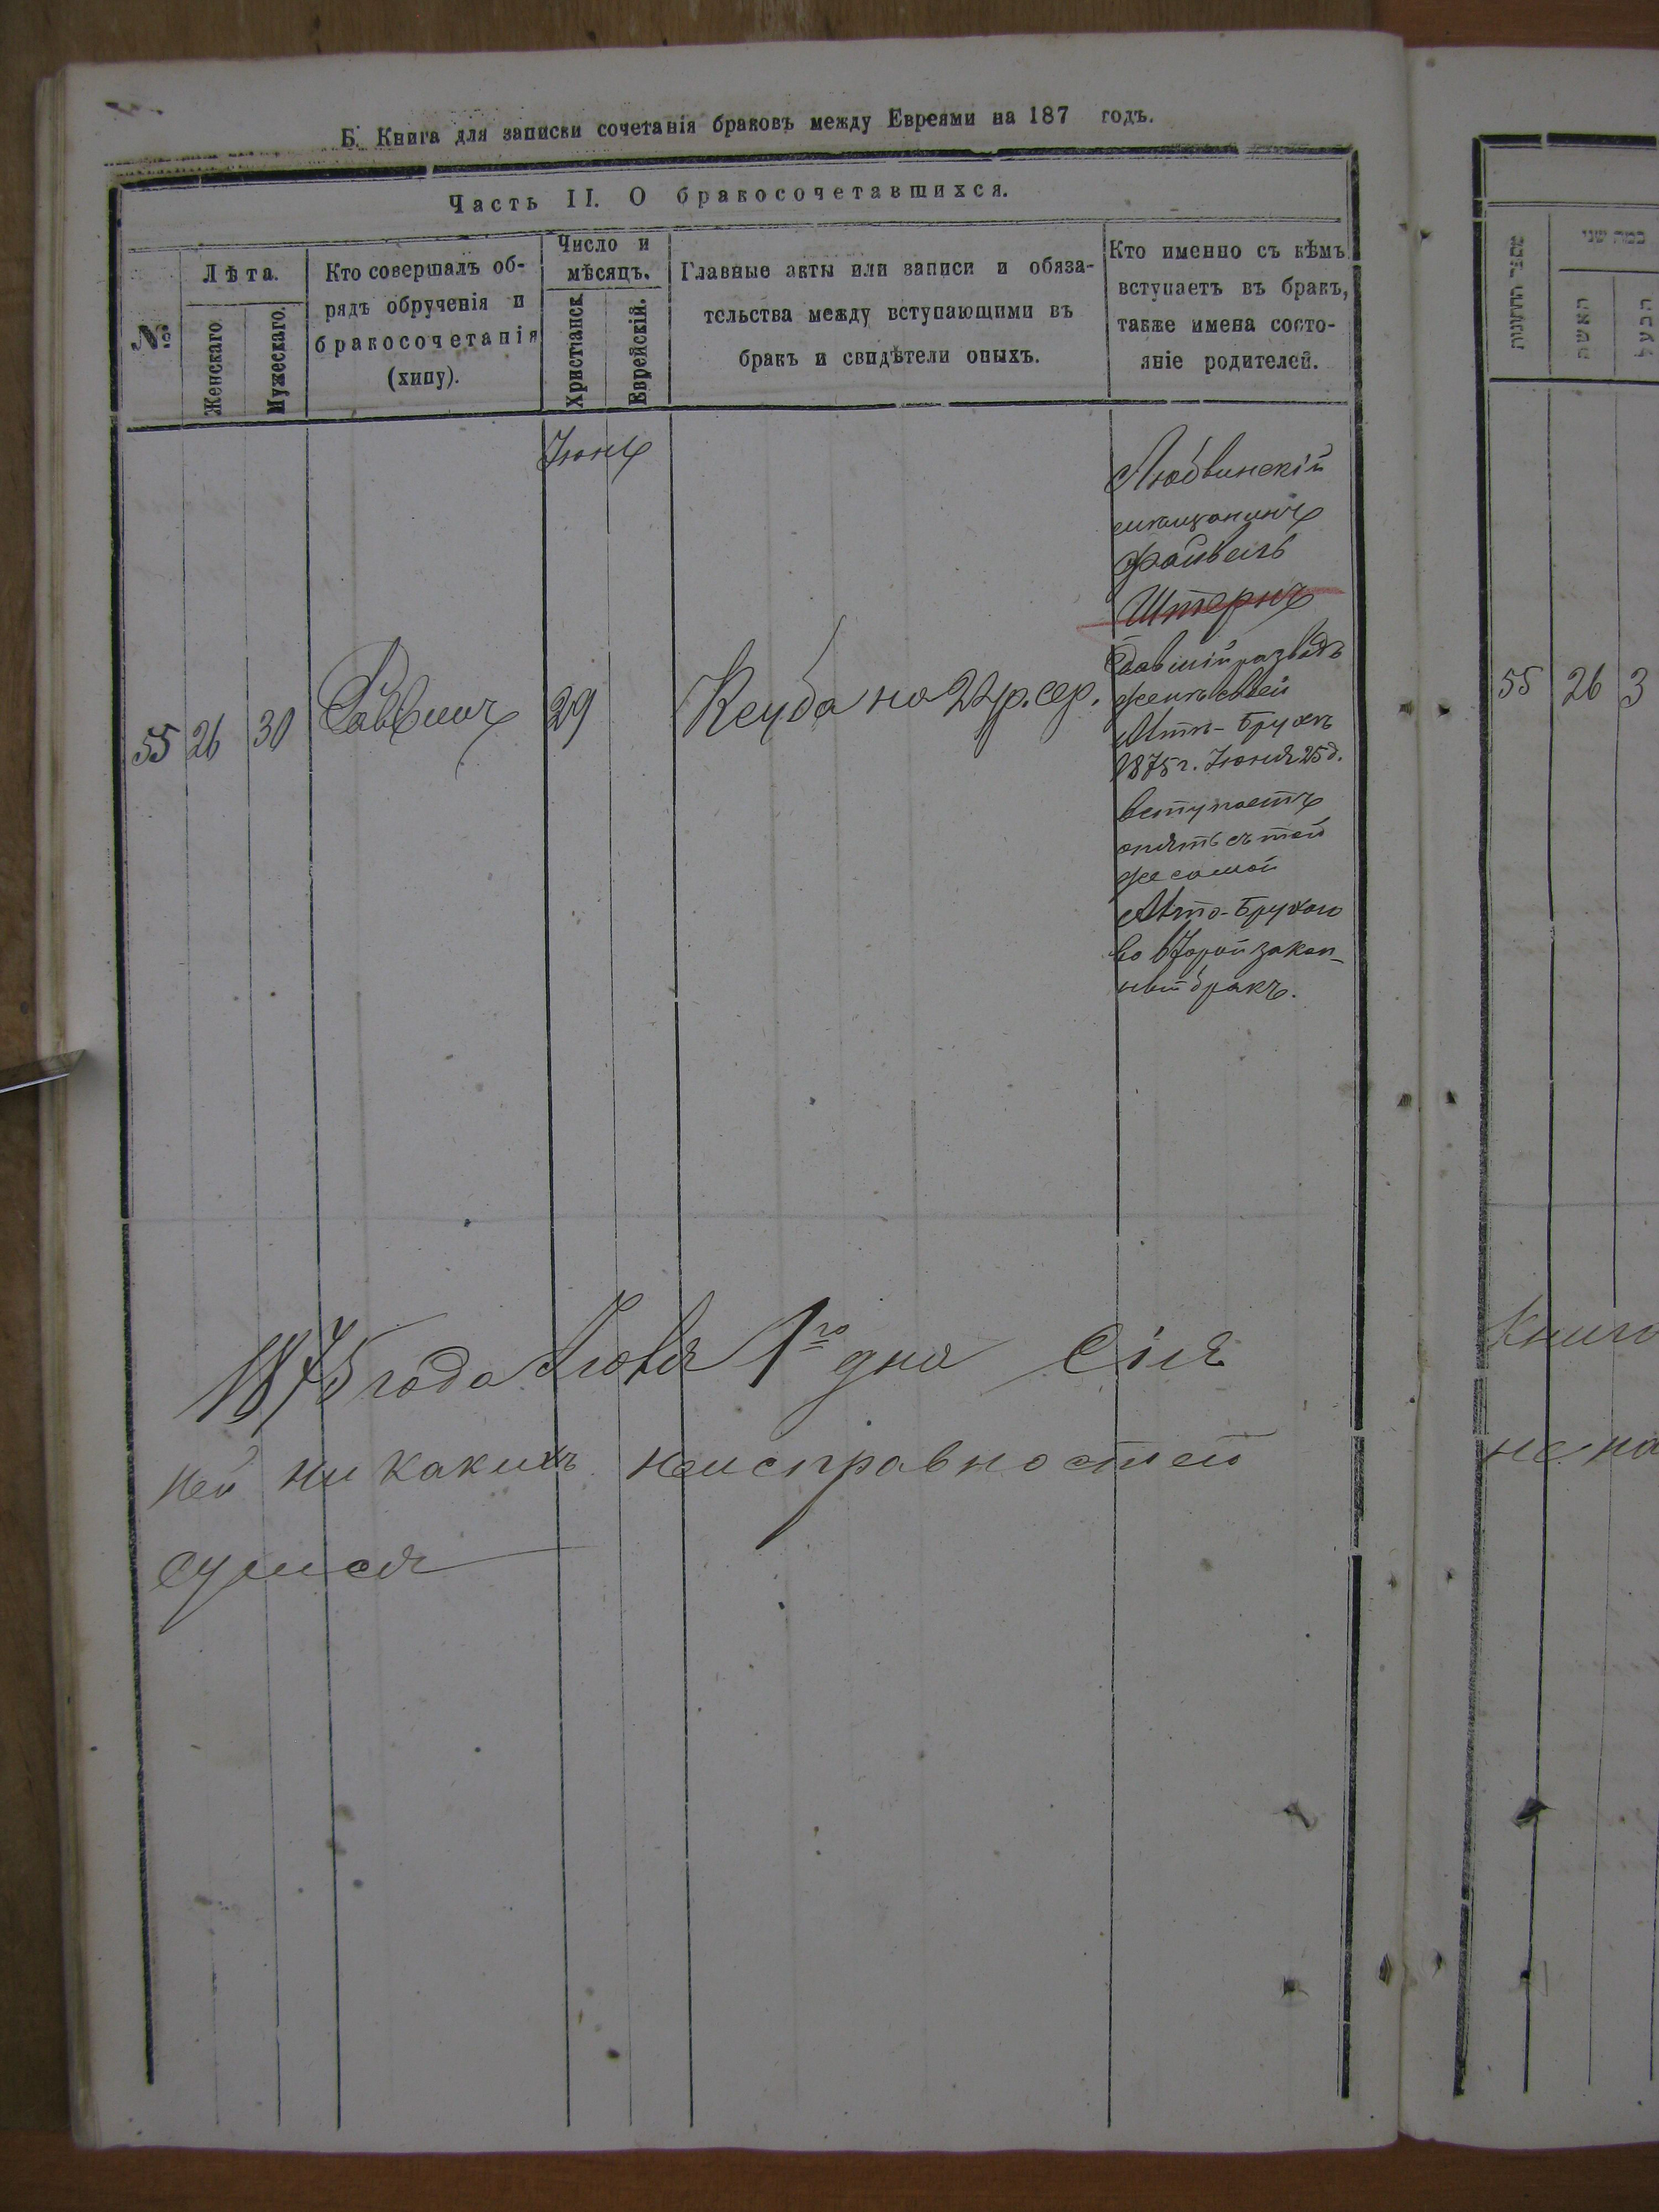 Б. Книга для записки сочетанія браковъ между Евреями на 187 годъ.
Часть II. О бракосочетавшихся.
№
Лѣта.
Женскаго
Мужескаго.
Кто совершалъ об-
рядъ обрученія и
бракосочетанія
(хипу).
Число и
мѣсяцъ.
Христіанск
Еврейскій.
Главные акты или записи и обяза-
тельства между вступающими въ
бракъ и свидѣтели оныхъ.
Кто именно съ кѣмъ
вступаетъ въ бракъ,
также имена состо-
яніе родителей.
Іюнь
55
26
30
Раввинъ
29
Кеуба на 22 р. сер.
мѣщанинъ
Файвель
Штернъ
давшій разводъ
женѣ своей
1875 г. Іюня 25 д.
вступаетъ
опять съ той
же самой
во второй закон-
ный бракъ.
1875 года Іюля 1го дня Сія
ней никакихъ неисправностей
מספר החתונות
כמה שני
האשה
הבעל
55
26
3
Книга
не